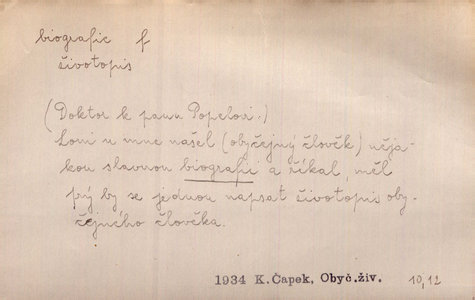 biografie f
životopis
(Doktor k panu Popelovi.)
Loni u mne našel (obyčejný člověk) něja-
kou slavnou biografii a říkal, měl
prý by se jednou napsat životopis oby-
čejného člověka.
1934 K.Čapek, Obyč.živ. 10,12